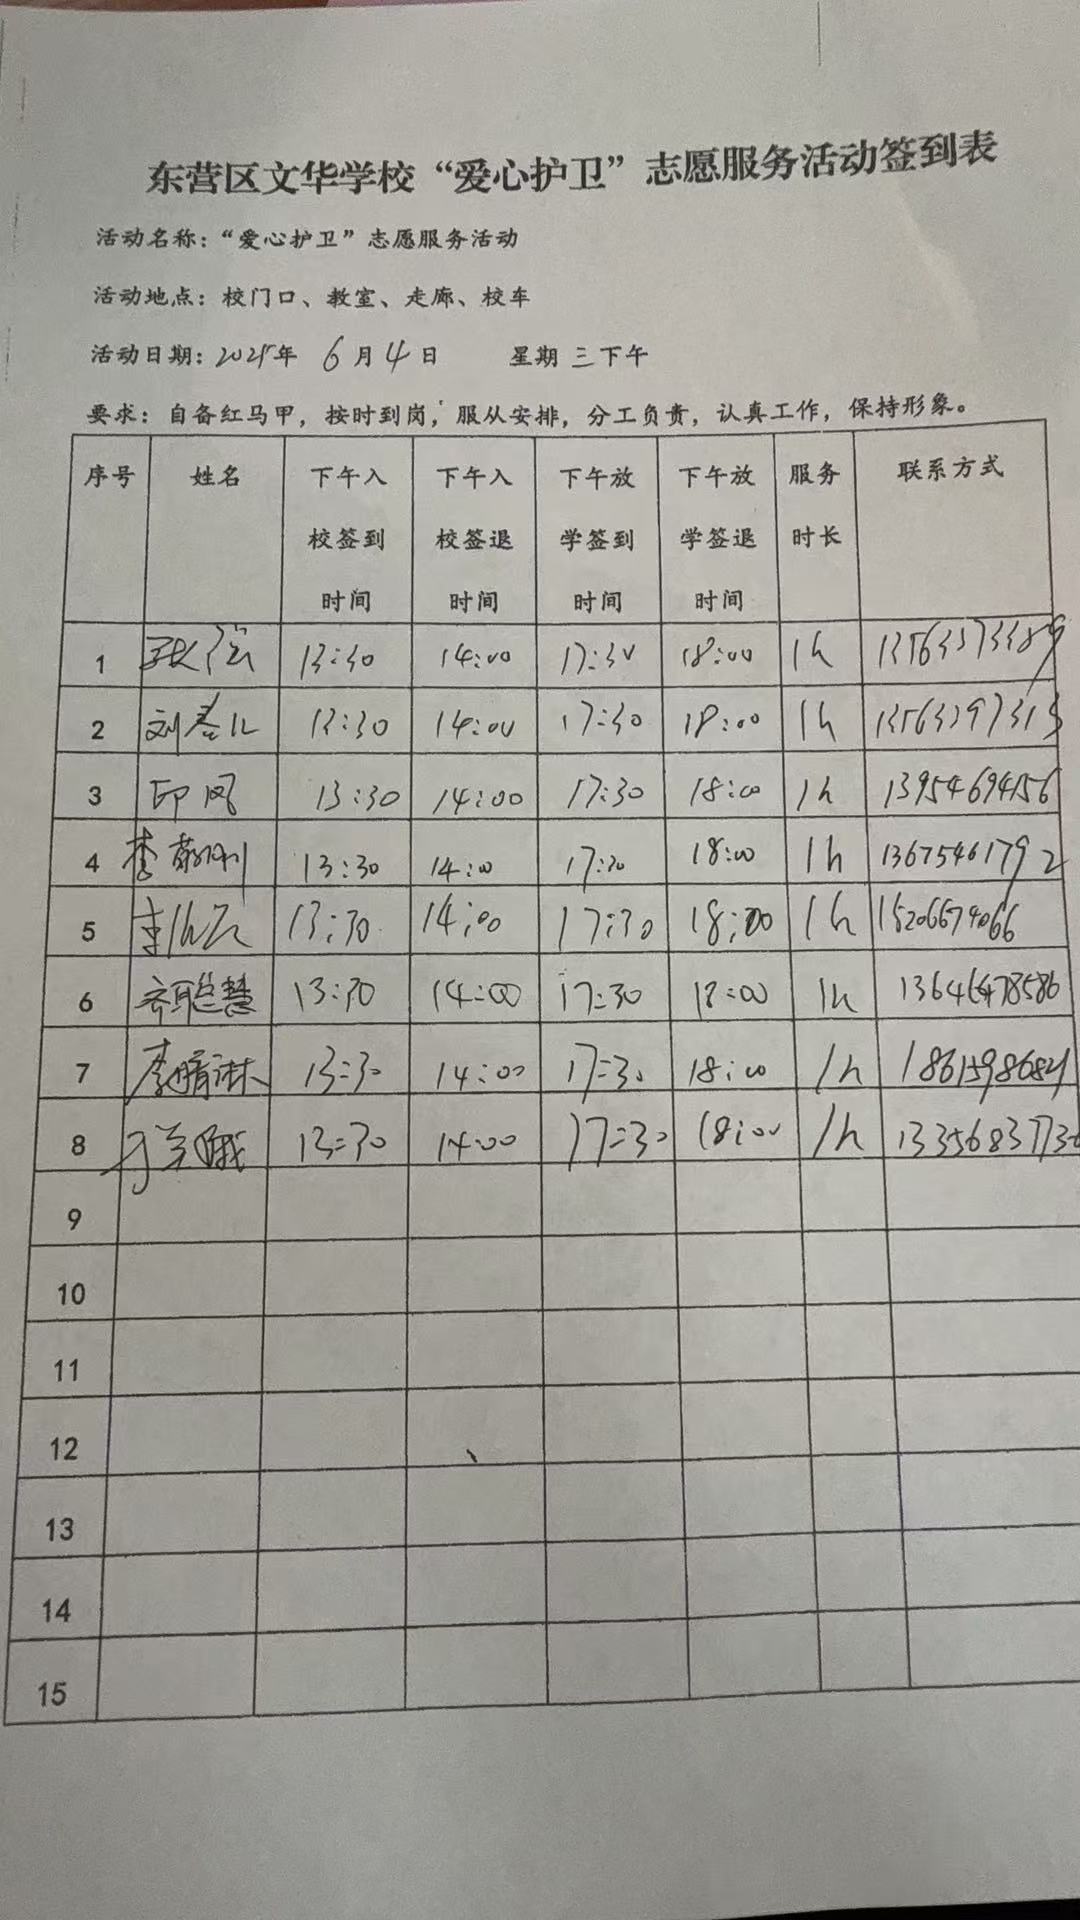 东营区文华学校“爱心护卫”志愿服务活动签到表
活动名称：“爱心护卫”志愿服务活动
活动地点：校门口、教室、走廊、校车
活动日期：2025年 6月4日 星期三下午
要求：自备红马甲，按时到岗，服从安排，分工负责，认真工作，保持形象。
序号 姓名 下午入校签到时间 下午入校签退时间 下午放学签到时间 下午放学签退时间 服务时长 联系方式
1 13:30 14:00 17:30 18:00 1h
2 刘春儿 13:30 14:00 17:30 18:00 1h 13563297313
3 邱风 13:30 14:00 17:30 18:00 1h 13954694156
4 李 13:30 14:00 17:30 18:00 1h 13675461792
5 13:30 14:00 17:30 18:00 1h 15206674066
6 齐聪慧 13:30 14:00 17:30 18:00 1h 13646478586
7 李晴淋 13:30 14:00 17:30 18:00 1h
8 13:30 14:00 17:30 18:00 1h
9
10
11
12
13
14
15